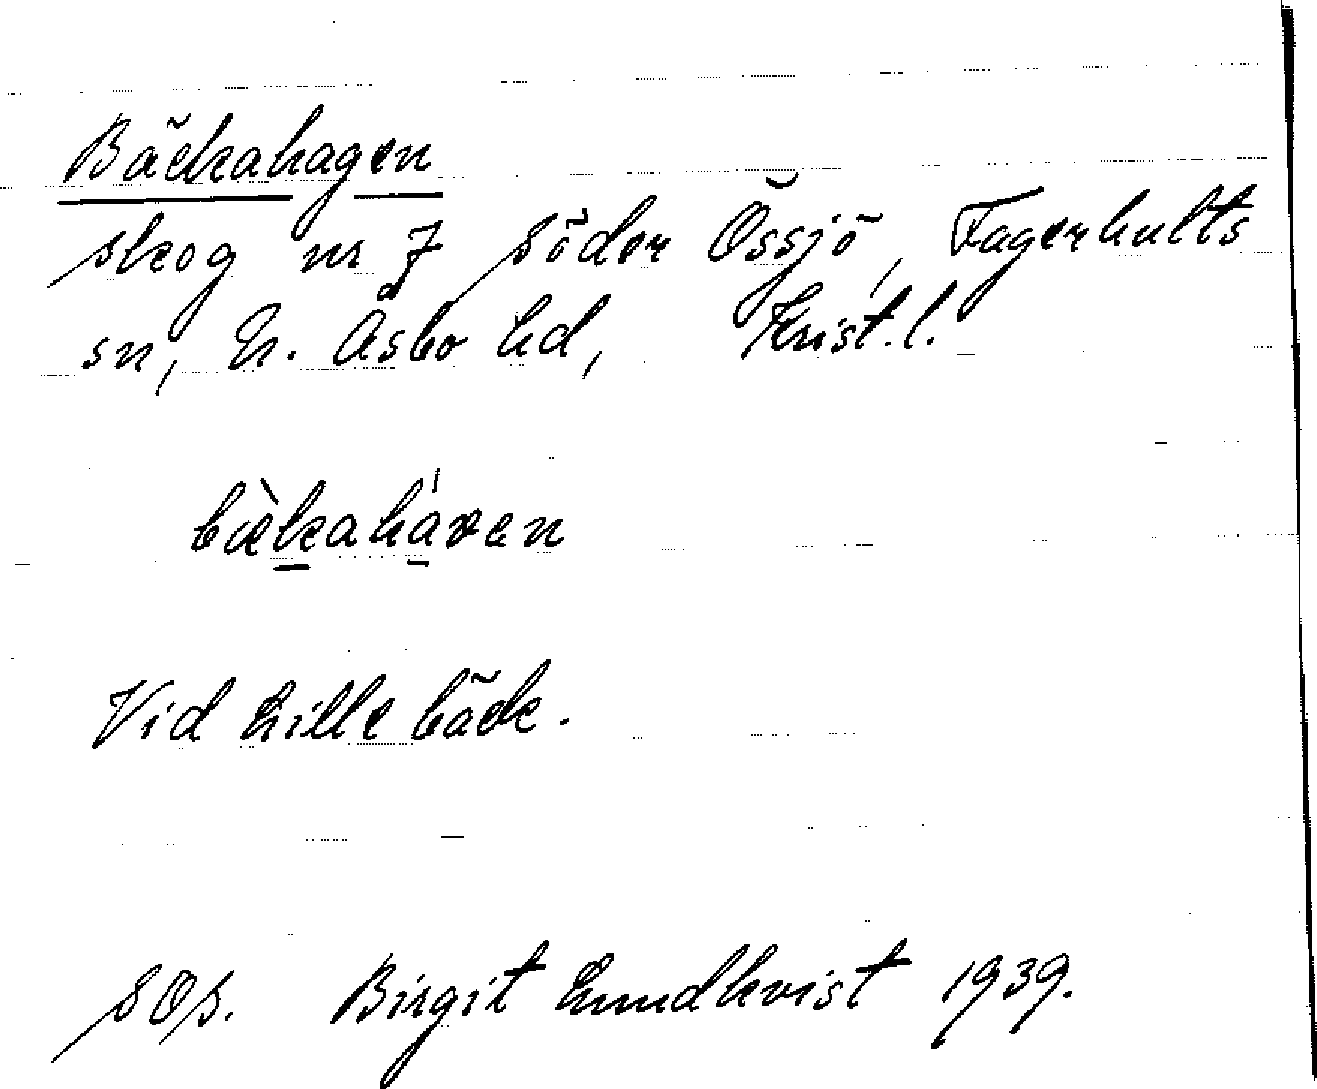 Bäckahagen
skog nr 7 Söder Össjö, Fagerhults
sn, N. Åsbo hd, Krist.l.
bæ̀kaháven
Vid Lille bäck.
SOS. Birgit Lundkvist 1939.